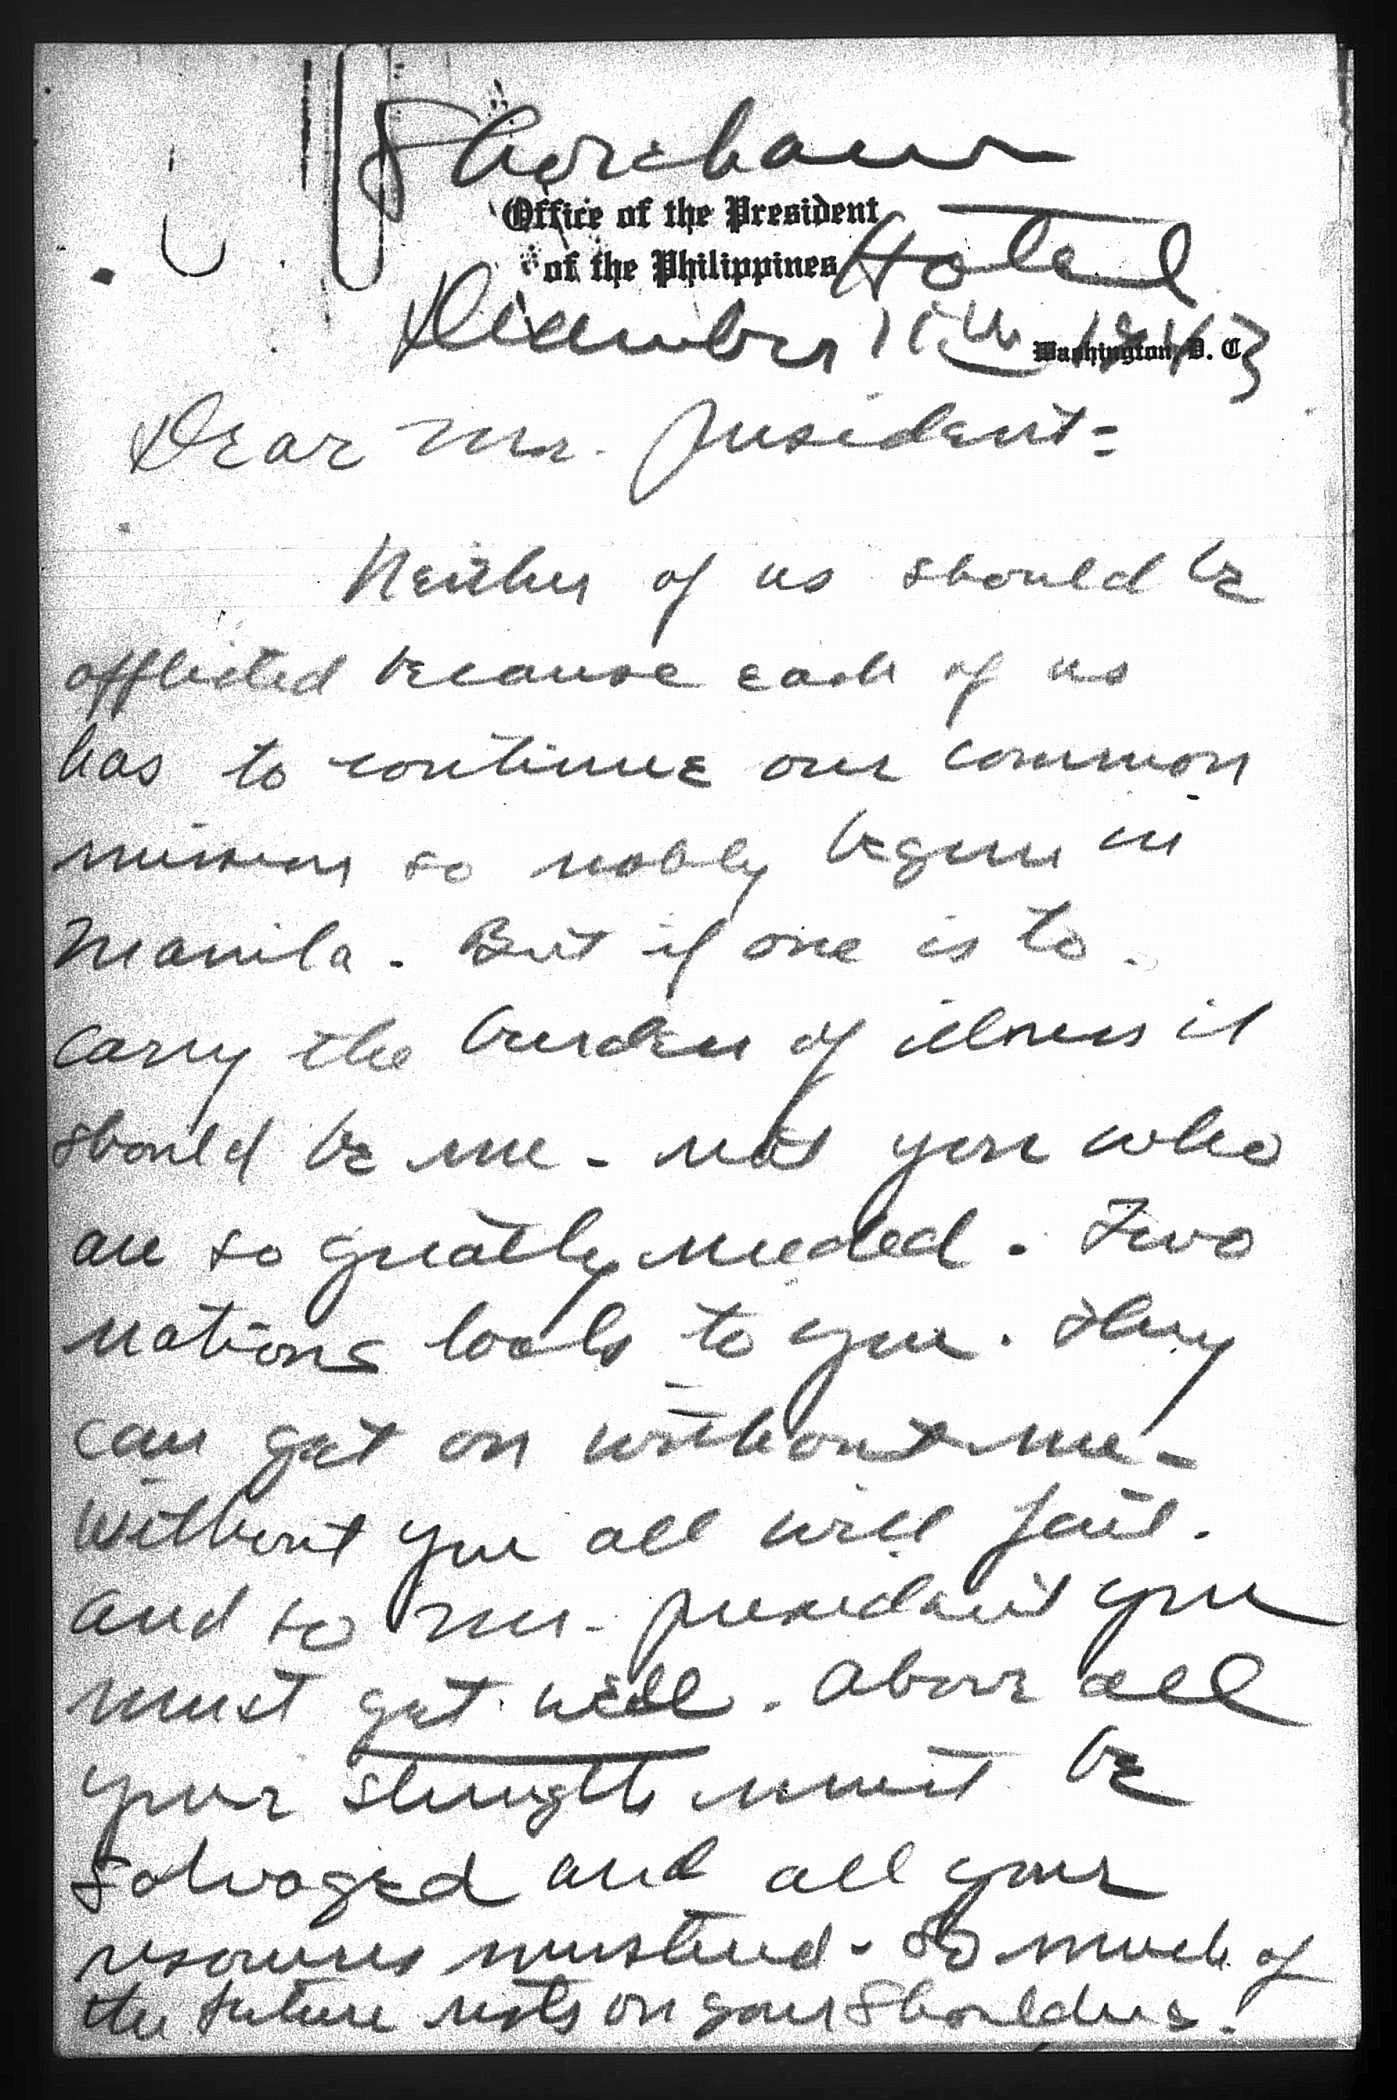 Shoreham
Office of the President
of the Philippines Hotel
December 15th 1943
Washington, D. C.
Dear Mr. President:
Neither of us should be
afflicted because each of us
has to continue our common
mission so nobly begun in
Manila. But if one is to
carry the burden of illness it
should be me - not you who
are so greatly needed. Two
nations look to you. They
can get on without me -
without you all will fail.
And so Mr. President you
must get well. Above all
your strength must be
salvaged and all your
resources mustered - So much of
the future rests on your shoulders!